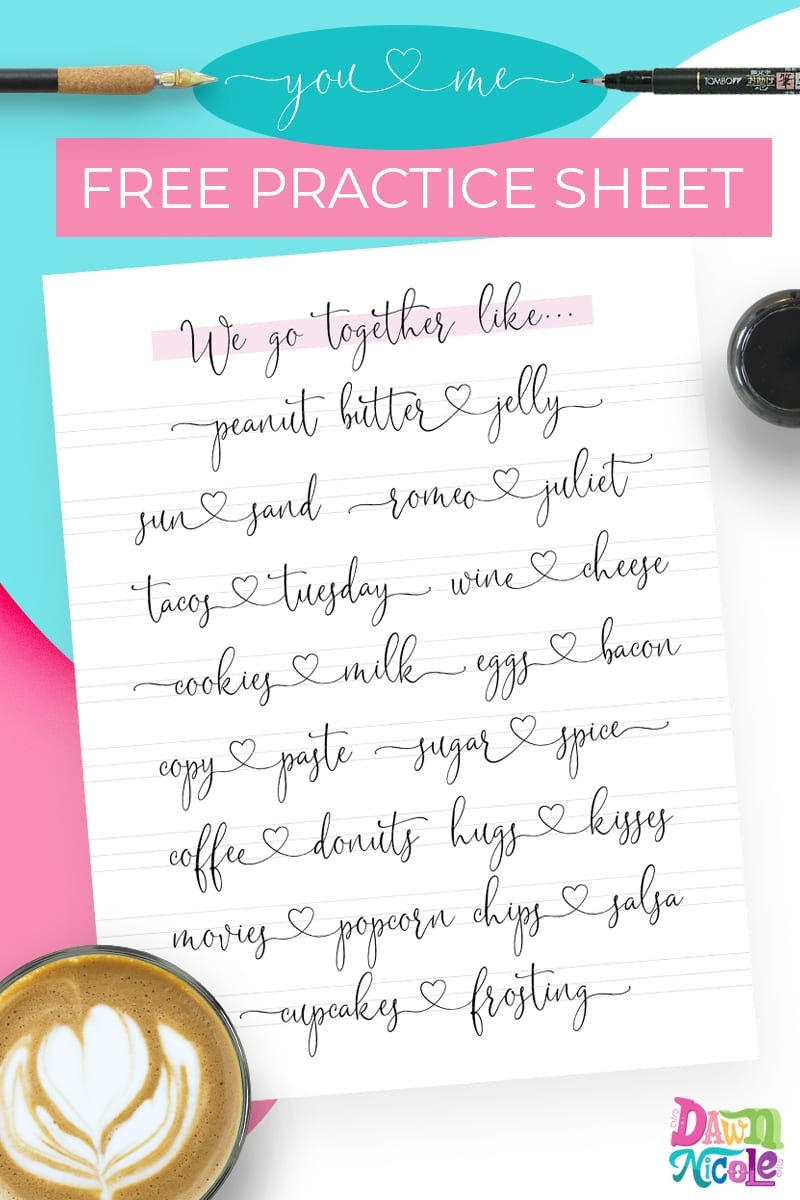 you me
TOMBOW
FREE PRACTICE SHEET
We go together like...
peanut butter jelly
sun sand romeo juliet
tacos tuesday wine cheese
cookies milk eggs bacon
copy paste sugar spice
coffee donuts hugs kisses
movies popcorn chips salsa
cupcakes frosting
DAWN
Nicole